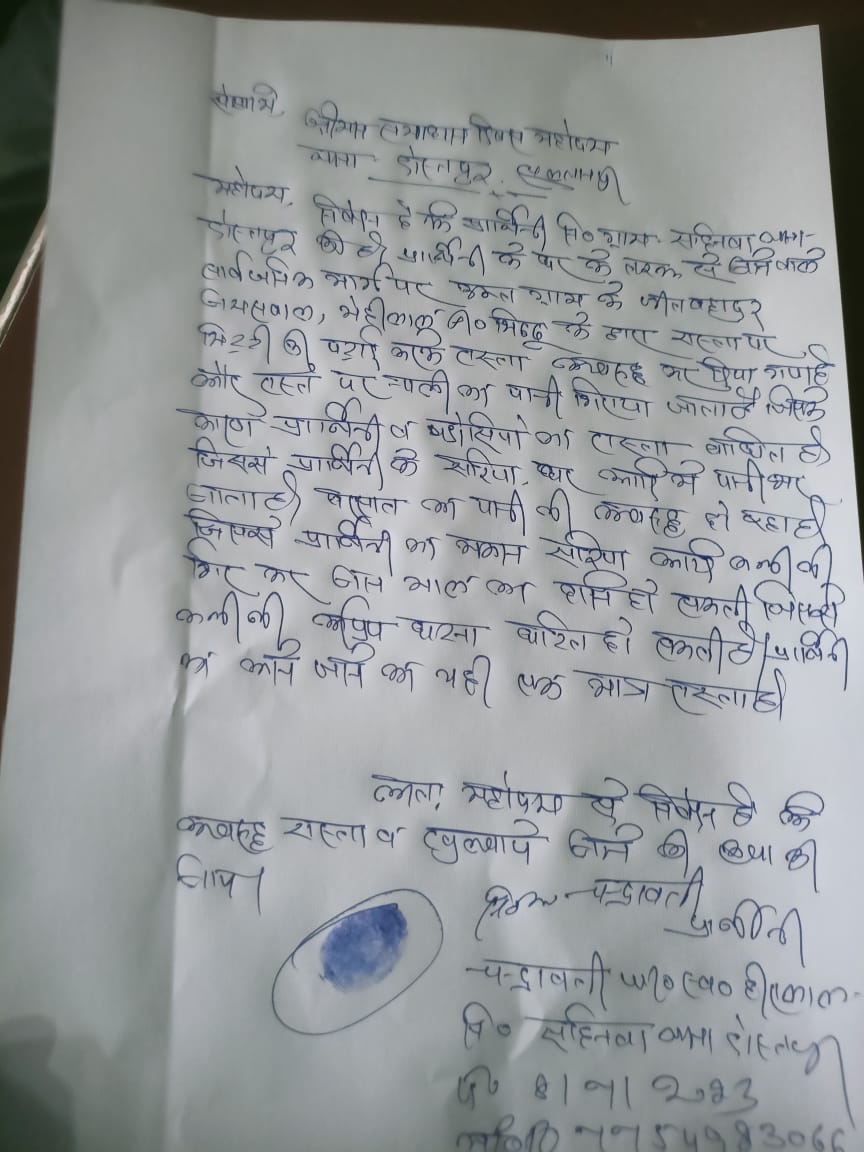 सेवा में,
श्रीमान समाधान दिवस महोदय
थाना - दोस्तपुर, सुलतानपुर
महोदय,
निवेदन है कि प्रार्थिनी नि० ग्राम सहिनवा थाना-
दोस्तपुर की है। प्रार्थिनी के घर के तरफ से
सार्वजनिक मार्ग पर ग्राम के जीतबहादुर
जायसवाल, के द्वारा रास्ता पर
मिट्टी की पटाई करके रास्ता अवरूद्ध कर दिया गया है
और रास्ते पर नाली का पानी गिराया जाता है जिसके
कारण प्रार्थिनी व पड़ोसियो का रास्ता बाधित है।
जिससे प्रार्थिनी के सरिया, घर आदि में पानी भर
जाता है। बरसात का पानी की अवरूद्ध हो रहा है।
जिससे प्रार्थिनी का मकान सरिया आदि कभी भी
गिर कर जान माल का हानि हो सकती जिससे
कभी भी अप्रिय घटना घटित हो सकती है। प्रार्थिनी
का आने जाने का यही एक मात्र रास्ता है।
अतः महोदय से निवेदन है कि
अवरूद्ध रास्ता व खुलवाये जाने की कृपा की
जाय।
चन्द्रावती
प्रार्थिनी
चन्द्रावती W/० स्व० हीरालाल-
नि० सहिनवा थाना दोस्तपुर